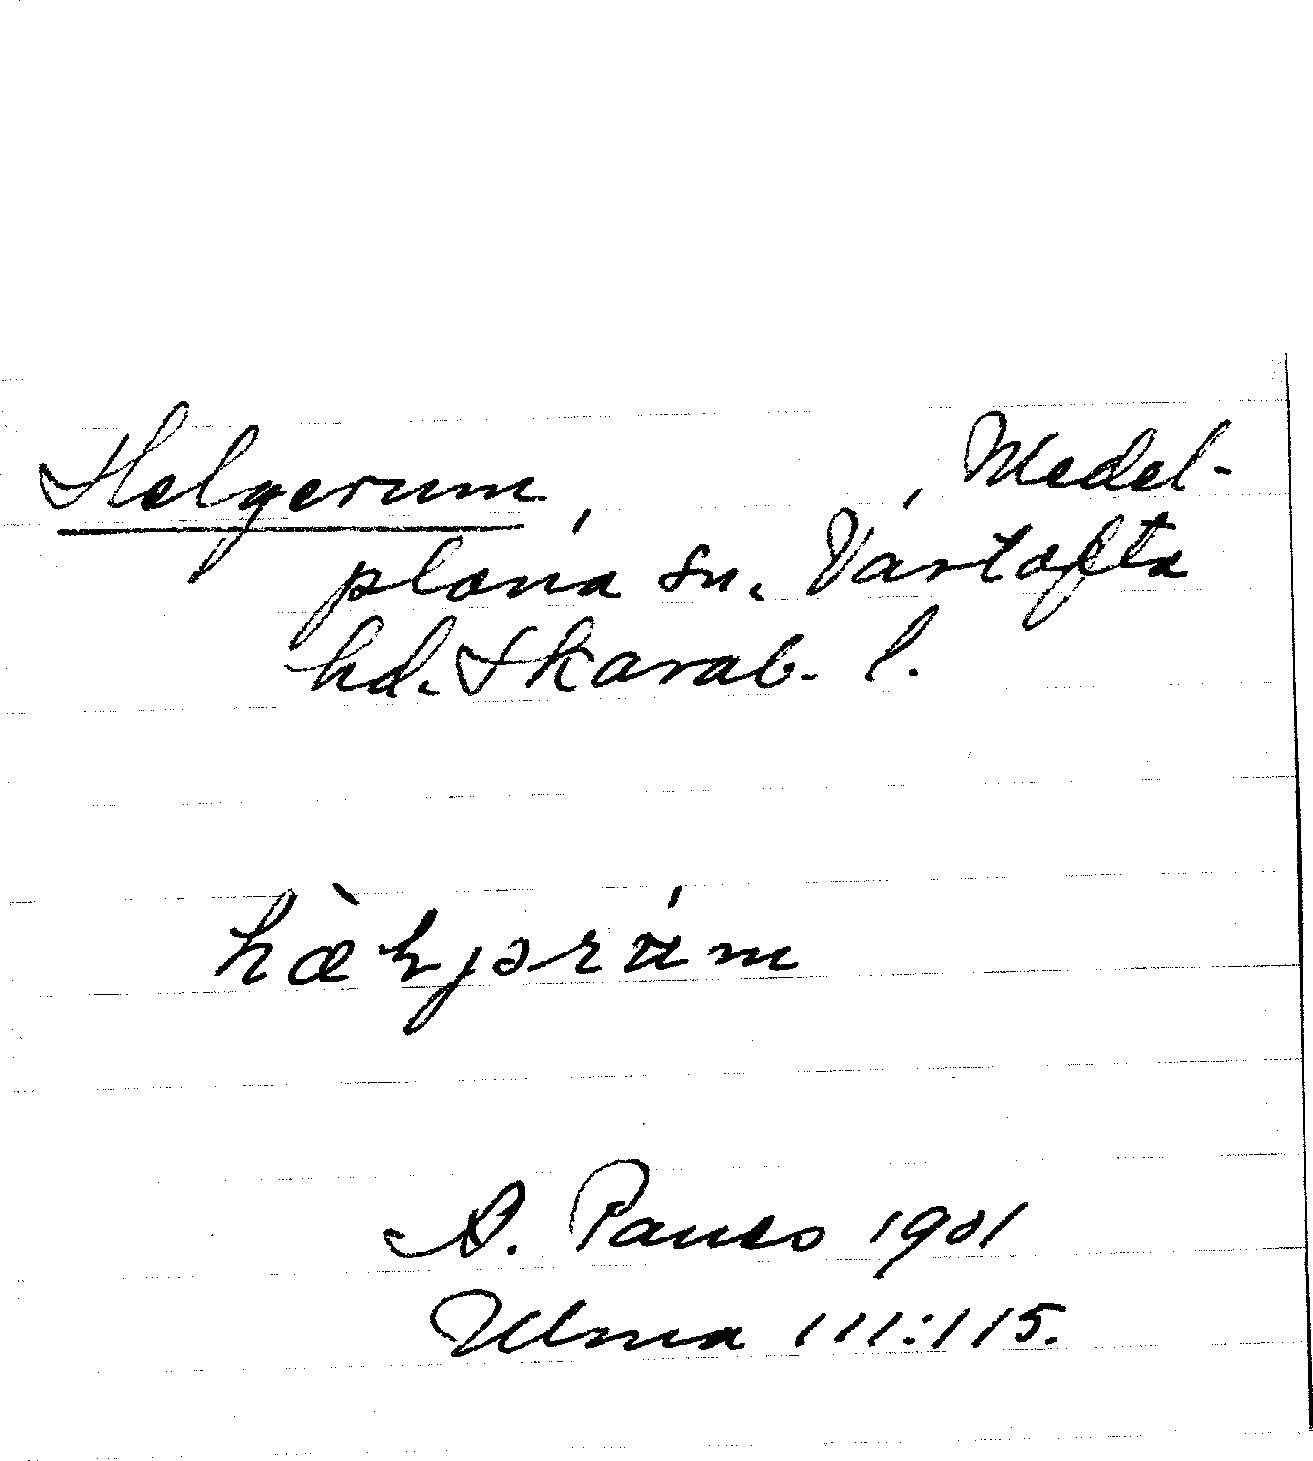 Helgerum, , Medel-
plana sn. Vartofta
hd. Skarab. l.
hæ̀ljərúm
1901
Ulma 111:115.